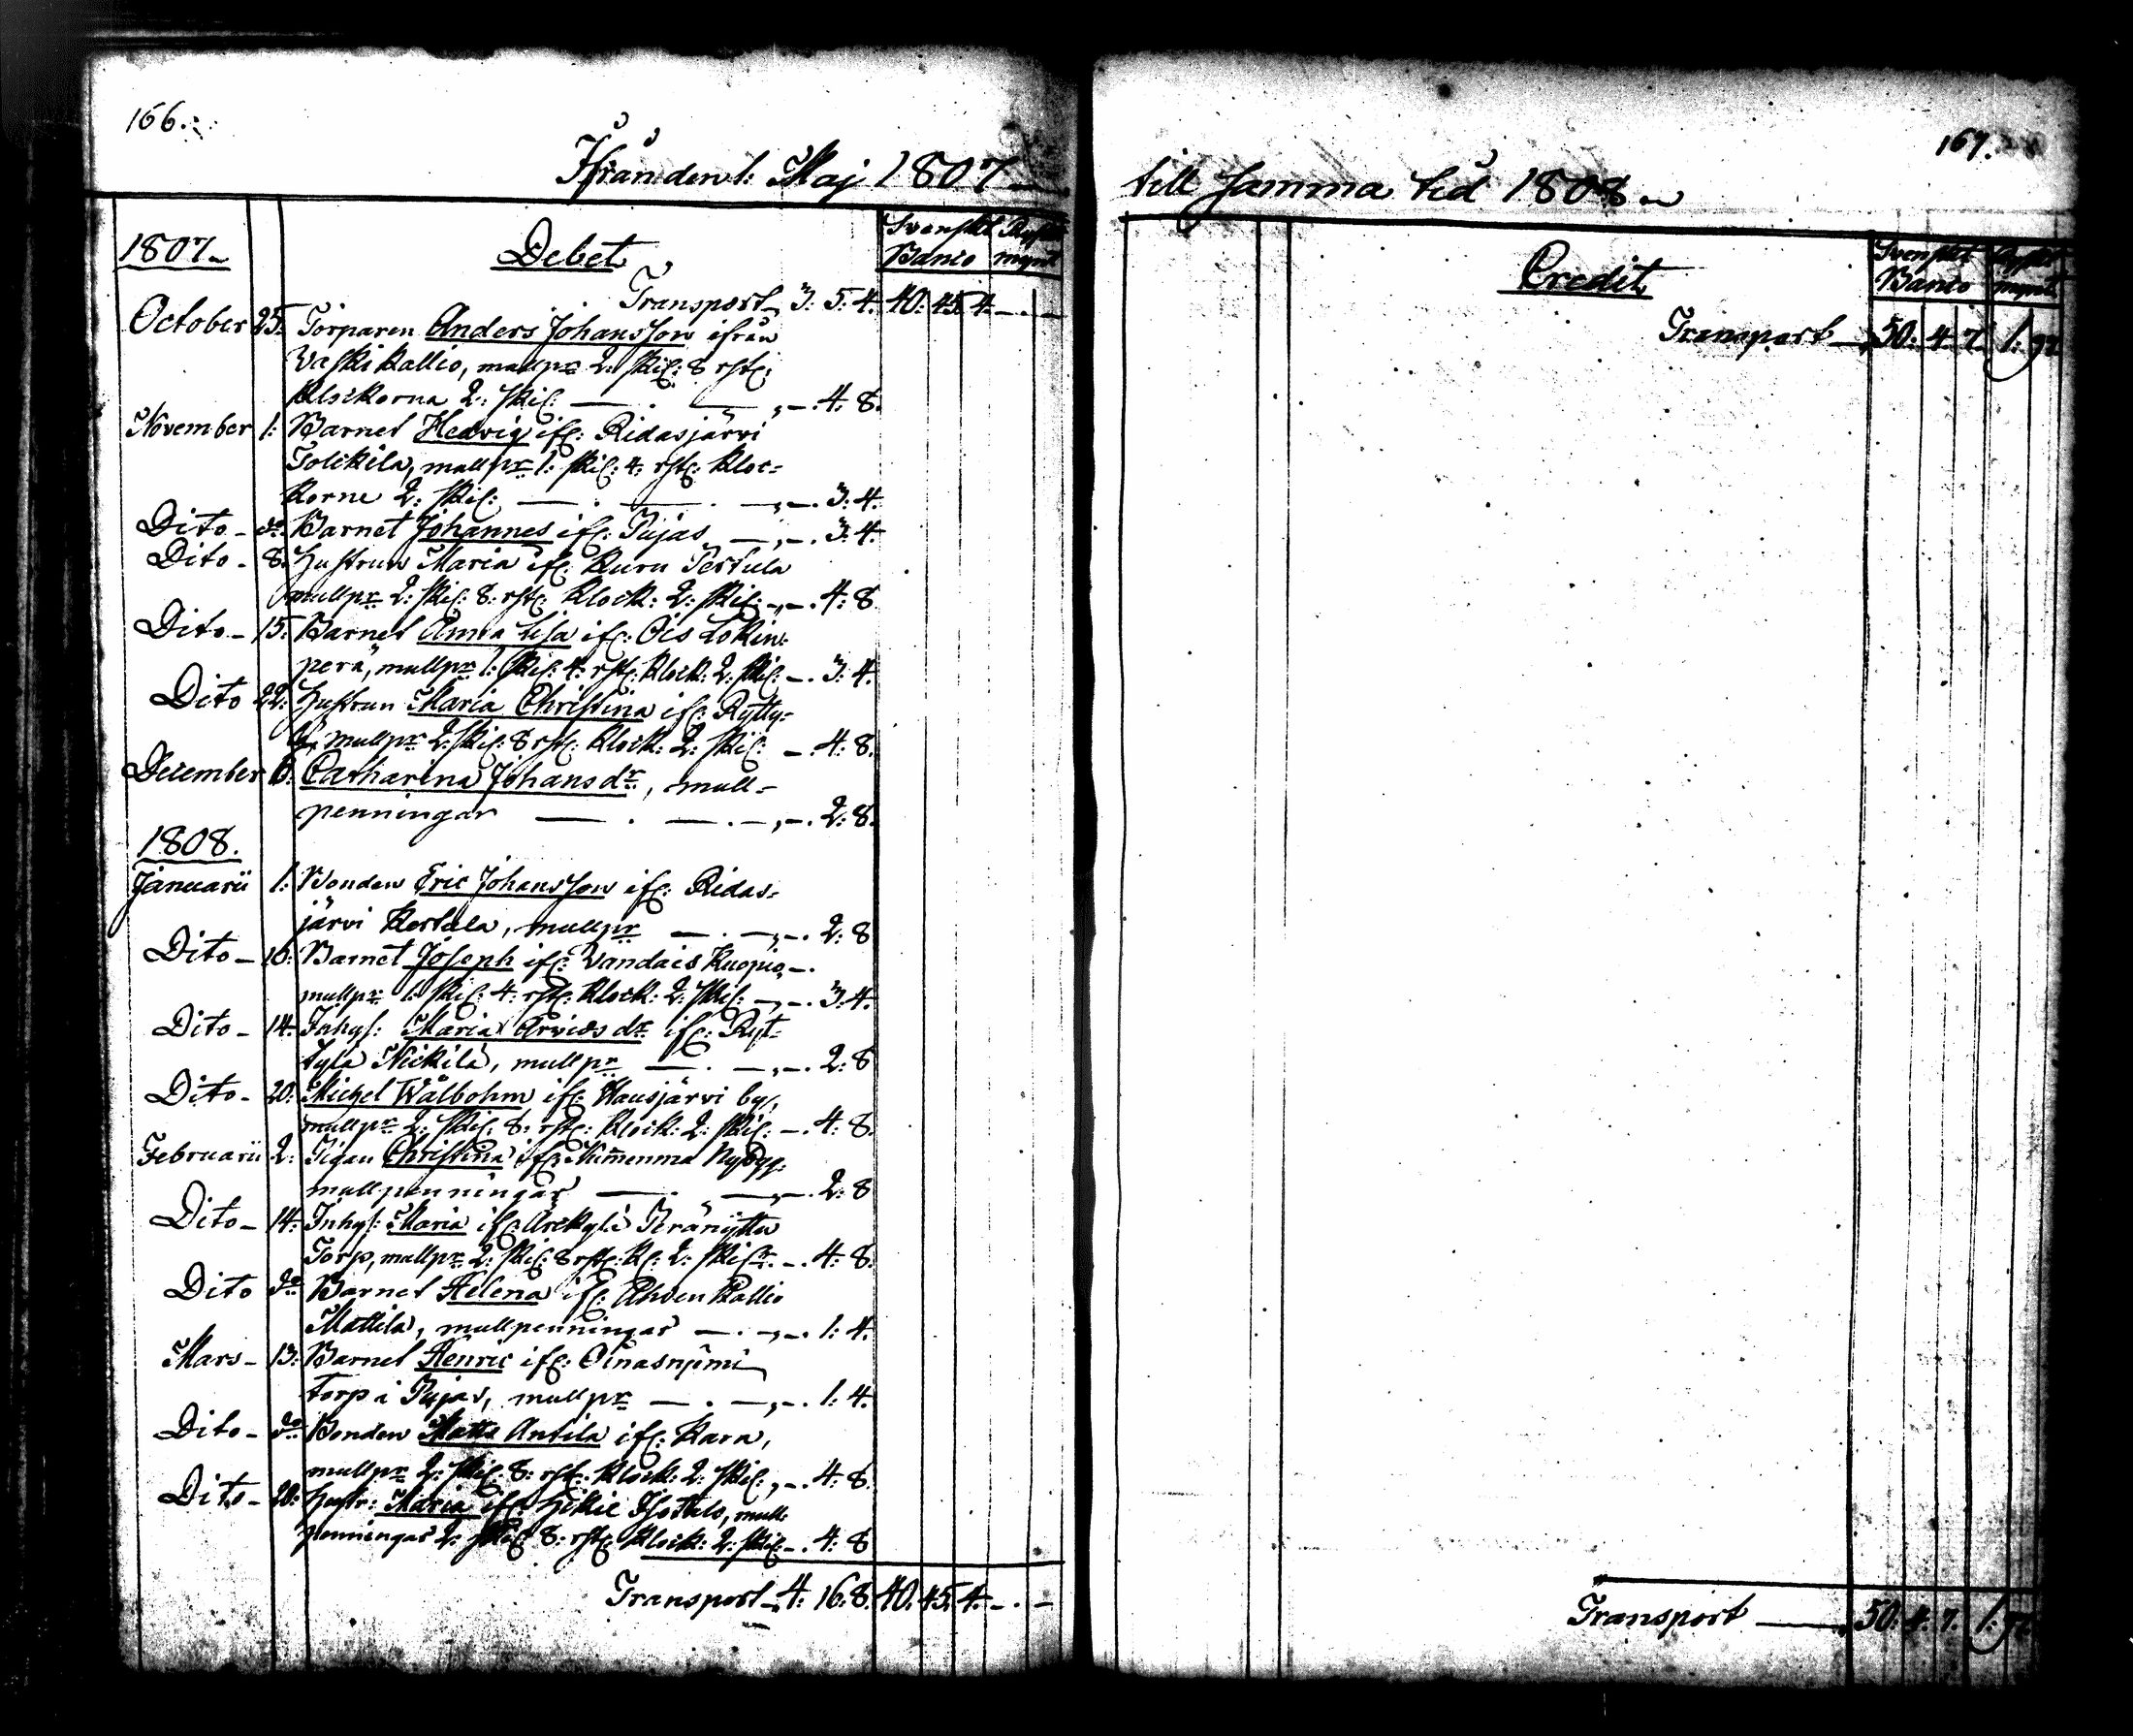 166.
Ifrån den 1: Maj 1807
1807
Debet
Svenskt Banco
Ryskt mynt
Transport 3: 5: 4. 40: 45: 4. — . —
October 25. Torparen Anders Johansson ifrån
Vaskikallio, mullpr 2: skil: 8 rst:
klockorna 2: skil: — . — „ — . 4: 8.
November 1: Barnet Hedvig ifr: Ridasjärvi
Tolckila, mullpr 1: skil: 4: rst: kloc=
korne 2: skil: — . — . — „ — . 3: 4.
Dito - do Barnet Johannes ifr: Pujas — „ — . 3: 4.
Dito - 8. Hustrun Maria ifr: Kuru Pertula
mullpr 2: skil: 8: rst: klock: 2: skil: — „ — . 4: 8
Dito - 15: Barnet Anna Lisa ifr: Ois
perä, mullpr 1: skil: 4: rst: klock: 2: skil: — . 3: 4.
Dito 22: Hustrun Maria Christina ifr: Rytty=
mullpr 2: skil: 8 rst: klock: 2: skil: — . 4: 8.
December 6. Catharina Johansdr, mull=
penningar — . — . — „ — . 2: 8.
1808.
Januarii 1: Bonden Eric Johansson ifr: Ridas=
järvi Kertula, mullpr — . — „ — . 2: 8
Dito - 10: Barnet Joseph ifr: Vandais Kuopio — .
mullpr 1: skil: 4: rst: klock: 2: skil: — „ — . 3: 4.
Dito - 14. Inhys: Maria Arvidsdr ifr: Ryt=
tylä Nickilä, mullpr — . — „ — . 2: 8
Dito - 20: Michel Wålbohm ifr: Hausjärvi by,
mullpr 2: skil: 8: rst: klock: 2: skil: — . 4: 8.
Februarii 2: Pigan Christina ifr: Nummenmä Nybyg:
mullpenningar — . — „ — . 2: 8
Dito - 14: Inhys: Maria ifr: Arckylä
Torp, mullpr 2: skil: 8 rst: Kl: 2: skilr. — . 4: 8.
Dito do Barnet Helena ifr: Ahdenkallio
Mattila, mullpenningar — . — „ — . 1: 4.
Mars - 13: Barnet Henric ifr: Oinasnjemi
torp i Pujas, mullpr — . — „ — . 1: 4.
Dito - do Bonden Matts Antila ifr: Kara,
mullpr 2: skil: 8: rst: klock: 2: skil: „ — . 4: 8.
Dito - 20: Hustr: Maria ifr: Hikie Isotalo, mull=
penningar 2: skil: 8: rst: klock: 2: skil: — . 4: 8
Transport 4: 16: 8. 40. 45. 4. — . —
167.
till samma tid 1808
Credit
Svenskt Banco
Ryskt mynt
Transport — 50: 4. 7. 1:
Transport — 50: 4. 7. 1: